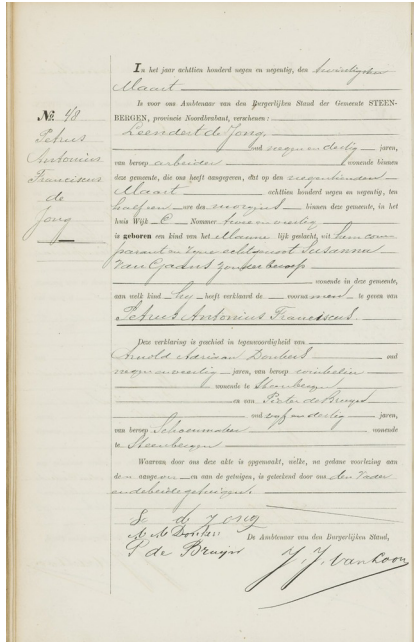 No. 48
Petrus
Antonius
Franciscus
de
Jong
In het jaar achttien honderd negen en negentig, den twintigsten
Maart
Is voor ons Ambtenaar van den Burgerlijken Stand der Gemeente STEEN-
BERGEN, provincie Noordbrabant, verschenen:
Leendert de Jong,
oud negenendertig jaren,
van beroep arbeider wonende binnen
deze gemeente, die ons heeft aangegeven, dat op den negentienden
Maart achttien honderd negen en negentig, ten
half een ure des morgens binnen deze gemeente, in het
huis Wijk C Nommer twee en veertig
is geboren een kind van het Mannelijk geslacht, uit hem com-
parant en zijne echtgenoot Susanna
van Gaans zonder beroep
wonende in deze gemeente,
aan welk kind hij heeft verklaard de voornamen te geven van
Petrus Antonius Franciscus
Deze verklaring is geschied in tegenwoordigheid van
Arnold Adriaan Donkers oud
negenenveertig jaren, van beroep
wonende te Steenbergen
en van Pieter de Bruyn
oud vijfendertig jaren,
van beroep Schoenmaker wonende
te Steenbergen
Waarvan door ons deze akte is opgemaakt, welke, na gedane voorlezing aan
den aangever en aan de getuigen, is geteekend door ons den Vader
en de beide getuigen.
L de Jong
A A Donkers
P. de Bruyn
De Ambtenaar van den Burgerlijken Stand,
J. J. van Loon